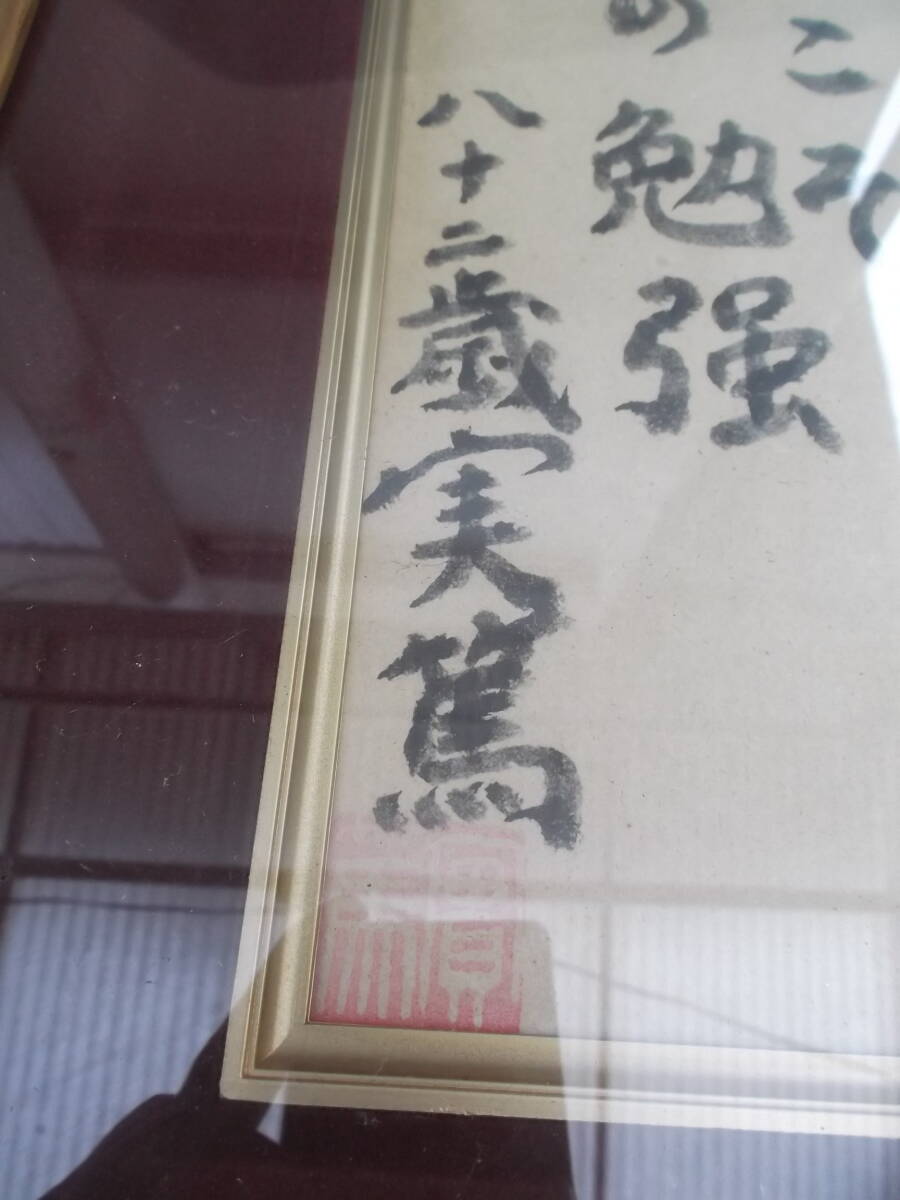 こそ
の勉強
八十二歳実篤